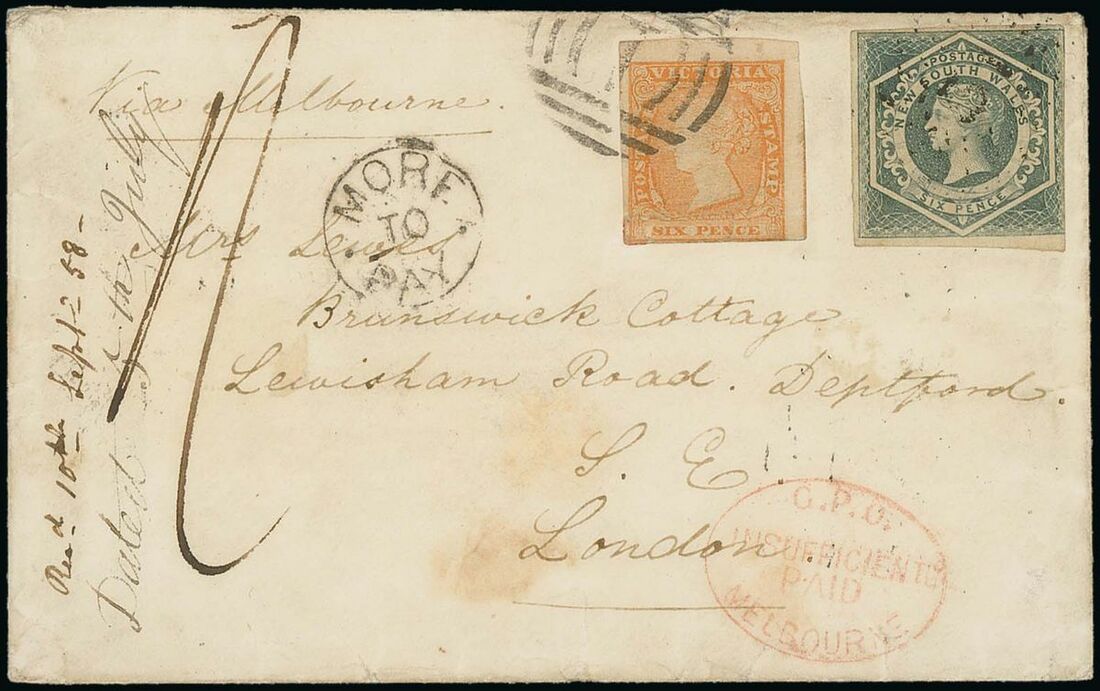 Via Melbourne.
VICTORIA
POSTAGE STAMP
SIX PENCE
POSTAGE
NEW SOUTH WALES
SIX PENCE
MORE
TO
PAY
Mrs Lewes
Brunswick Cottage
Lewisham Road. Deptford.
S. E
London.
G.P.O.
INSUFFICIENTLY
PAID
MELBOURNE
Dated July
Recd 10th Sept 58 -